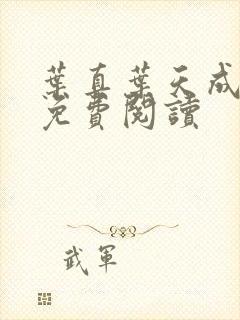 葉真葉天成
免費閱讀
武軍